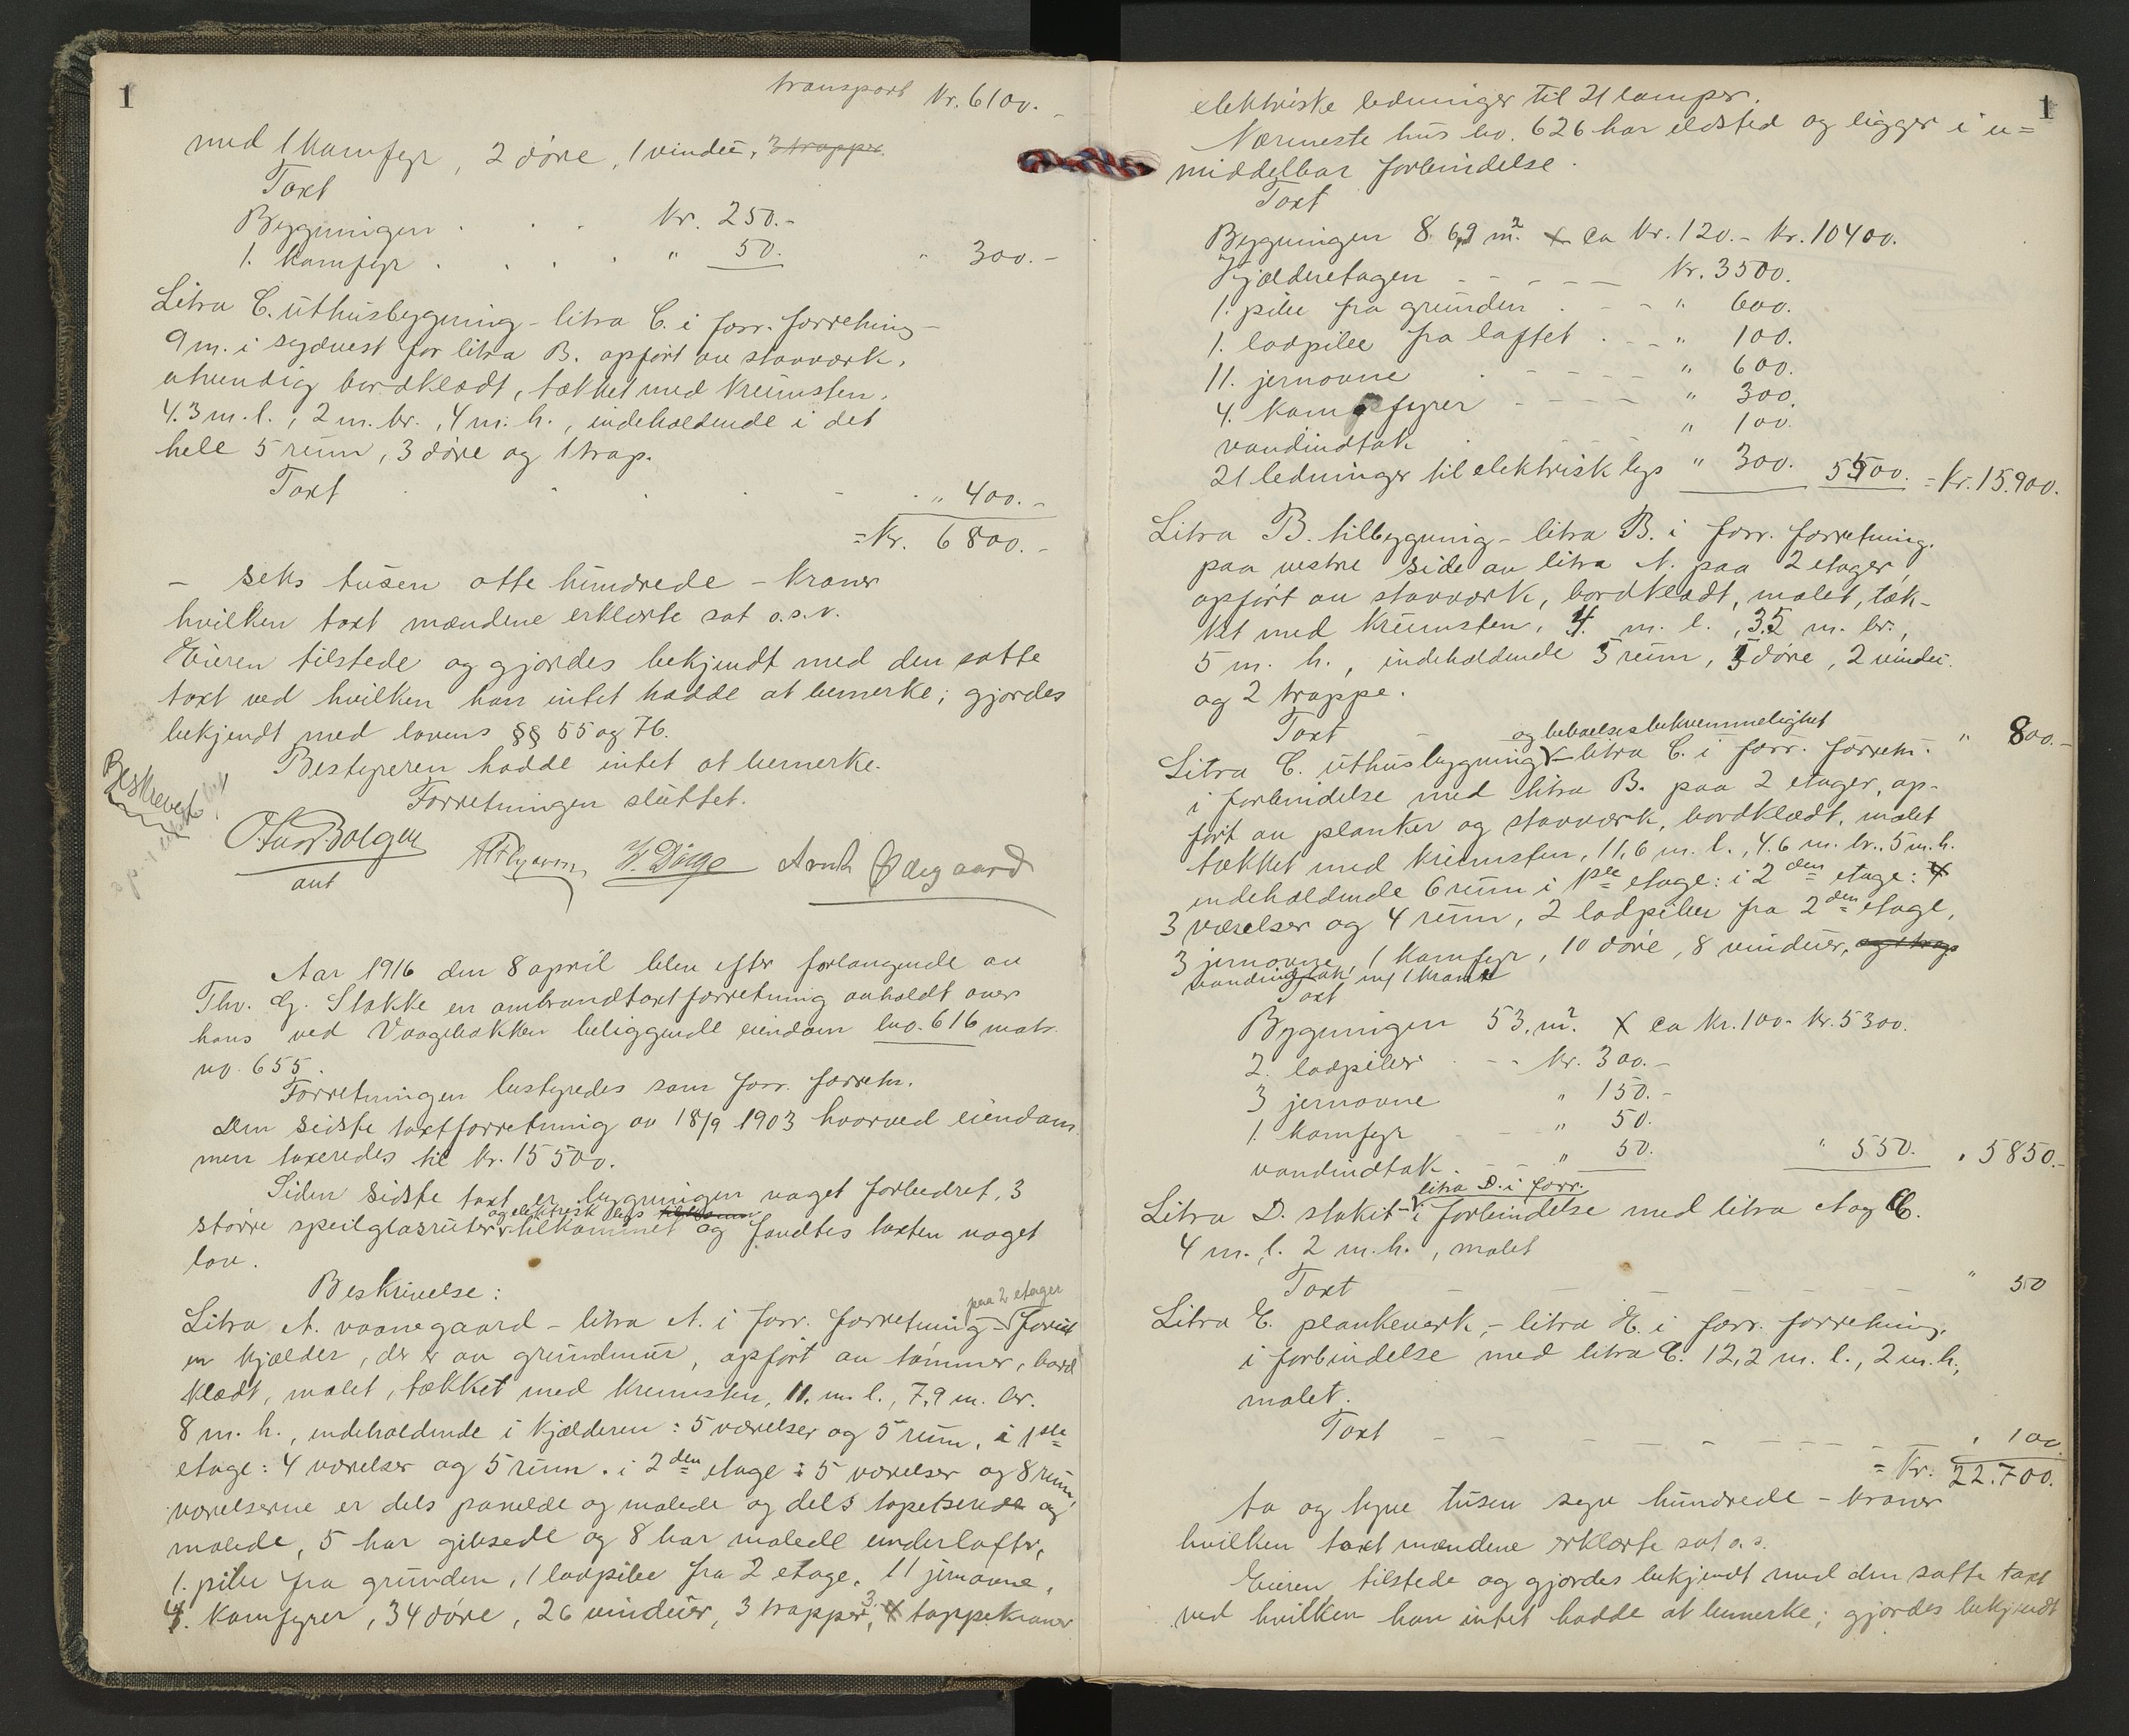 1
transport Kr. 6100.-
med 1 kamfyr, 2 døre, 1 vindu, 3 trapper.
Taxt
Bygningen . . . Kr. 250.-
1. kamfyr . . . . " 50. " 300.-
Litra C. uthusbygning - litra C. i forr. forretning -
9 m. i sydvest for litra B. opført av stavverk,
utvendig bordklædt, tækket med krumsten.
4.3 m. l., 2 m. br., 4 m. h., indeholdende i det
hele 5 rum, 3 døre og 1 trap.
Taxt . . . . - . " 400.-
= Kr. 6800.-
- seks tusen otte hundrede - kroner
hvilken taxt mændene erklærte sat o.s.v.
Eieren tilstede og gjordes bekjendt med den satte
taxt ved hvilken han intet hadde at bemerke; gjordes
bekjendt med lovens §§ 55 og 76.
Bestyreren hadde intet at bemerke.
Forretningen sluttet.
Beskrevet
W. Dage Arnth Ødegaard
Aar 1916 den 8 april blev efter forlangende av
Thv. G. Stokke en ombrandtaxtforretning avholdt over
hans ved Vaagebakken beliggende eiendom bno. 616 matr.
no. 655.
Forretningen bestyredes som forr. forretn.
Den sidste taxtforretning av 18/9 1903 hvorved eiendom
men taxeredes til kr. 15500.
Siden sidste taxt er bygningen noget forbedret, 3
og elektrisk lys
større speilglasruter tilkommet og fandtes taxten noget
lav.
Beskrivelse:
paa 2 etager
Litra A. vaanegaard - litra A. i forr. forretning - foruten
en kjælder, der er av grundmur, opført av tømmer, bord
klædt, malet, tækket med krumsten, 11. m. l., 7,9 m. br.
8 m. h., indeholdende i kjælderen: 5 værelser og 5 rum, i 1ste
etage: 4 værelser og 5 rum. i 2den etage: 5 værelser og 8 rum,
værelserne er dels panelde og malede og dels tapetserede og
malede, 5 har gibsede og 8 har malede underlofter,
1. pibe fra grunden, 1 ladpibe fra 2 etage, 11 jernovne,
4. kamfyrer, 34 døre, 26 vinduer, 3 trapper, 3 tappekraner
1
elektriske ledninger til 21 lamper.
Nærmeste hus bo. 626 har ildsted og ligger i u=
middelbar forbindelse.
Taxt
Bygningen 86,9 m². x ca Kr. 120.- Kr. 10400.
Kjælderetagen - - - - - Kr. 3500.
1. pibe fra grunden . - - " 600.
1. ladpibe fra loftet . - - " 100.
11. jernovne . - - - - " 600.
4. kamfyrer - - - - " 300.
vandindtak . - - - " 100.
21 ledninger til elektrisk lys " 300. 5500. = Kr. 15.900.
Litra B. tilbygning - litra B. i forr. forretning.
paa vestre side av litra A. paa 2 etager,
opført av stavverk, bordklædt, malet, tæk-
ket med krumsten, 4. m. l., 3.5 m. br.,
5 m. h., indeholdende 5 rum, 5 døre, 2 vindu.
og 2 trappe.
Taxt - " 800.-
og beboelsesbekvemmelighet
Litra C. uthusbygning - litra C. i forr. forretn.
i forbindelse med litra B. paa 2 etager, op-
ført av planker og stavverk, bordklædt, malet
tækket med krumsten, 11,6 m. l., 4.6 m. br., 5 m. h.
indeholdende 6 rum i 1ste etage: i 2den etage:
3 værelser og 4 rum, 2 ladpiber fra 2den etage,
3 jernovne, 1 kamfyr, 10 døre, 8 vinduer, og 1 trap
vandindtak m/ 1 kran
Taxt
Bygningen 53. m². x ca Kr. 100.- Kr. 5300.
2. ladpiber . - - Kr. 300.-
3 jernovne " 150.-
1. kamfyr - - " 50.
vandindtak . - - " 50. " 550. " 5850.-
litra D. i forr.
Litra D. stakit - i forbindelse med litra A og C.
4 m. l. 2 m. h., malet
Taxt - - - - - " 50
Litra E. plankeverk, - litra E. i forr. forretning,
i forbindelse med litra C. 12,2 m. l., 2 m. h.,
malet.
Taxt - - - - - - - " 100.
= Kr. 22.700.
to og tyve tusen syv hundrede - kroner
hvilken taxt mændene erklærte sat o. s.
Eieren tilstede og gjordes bekjendt med den satte taxt
ved hvilken han intet hadde at bemerke; gjordes bekjendt